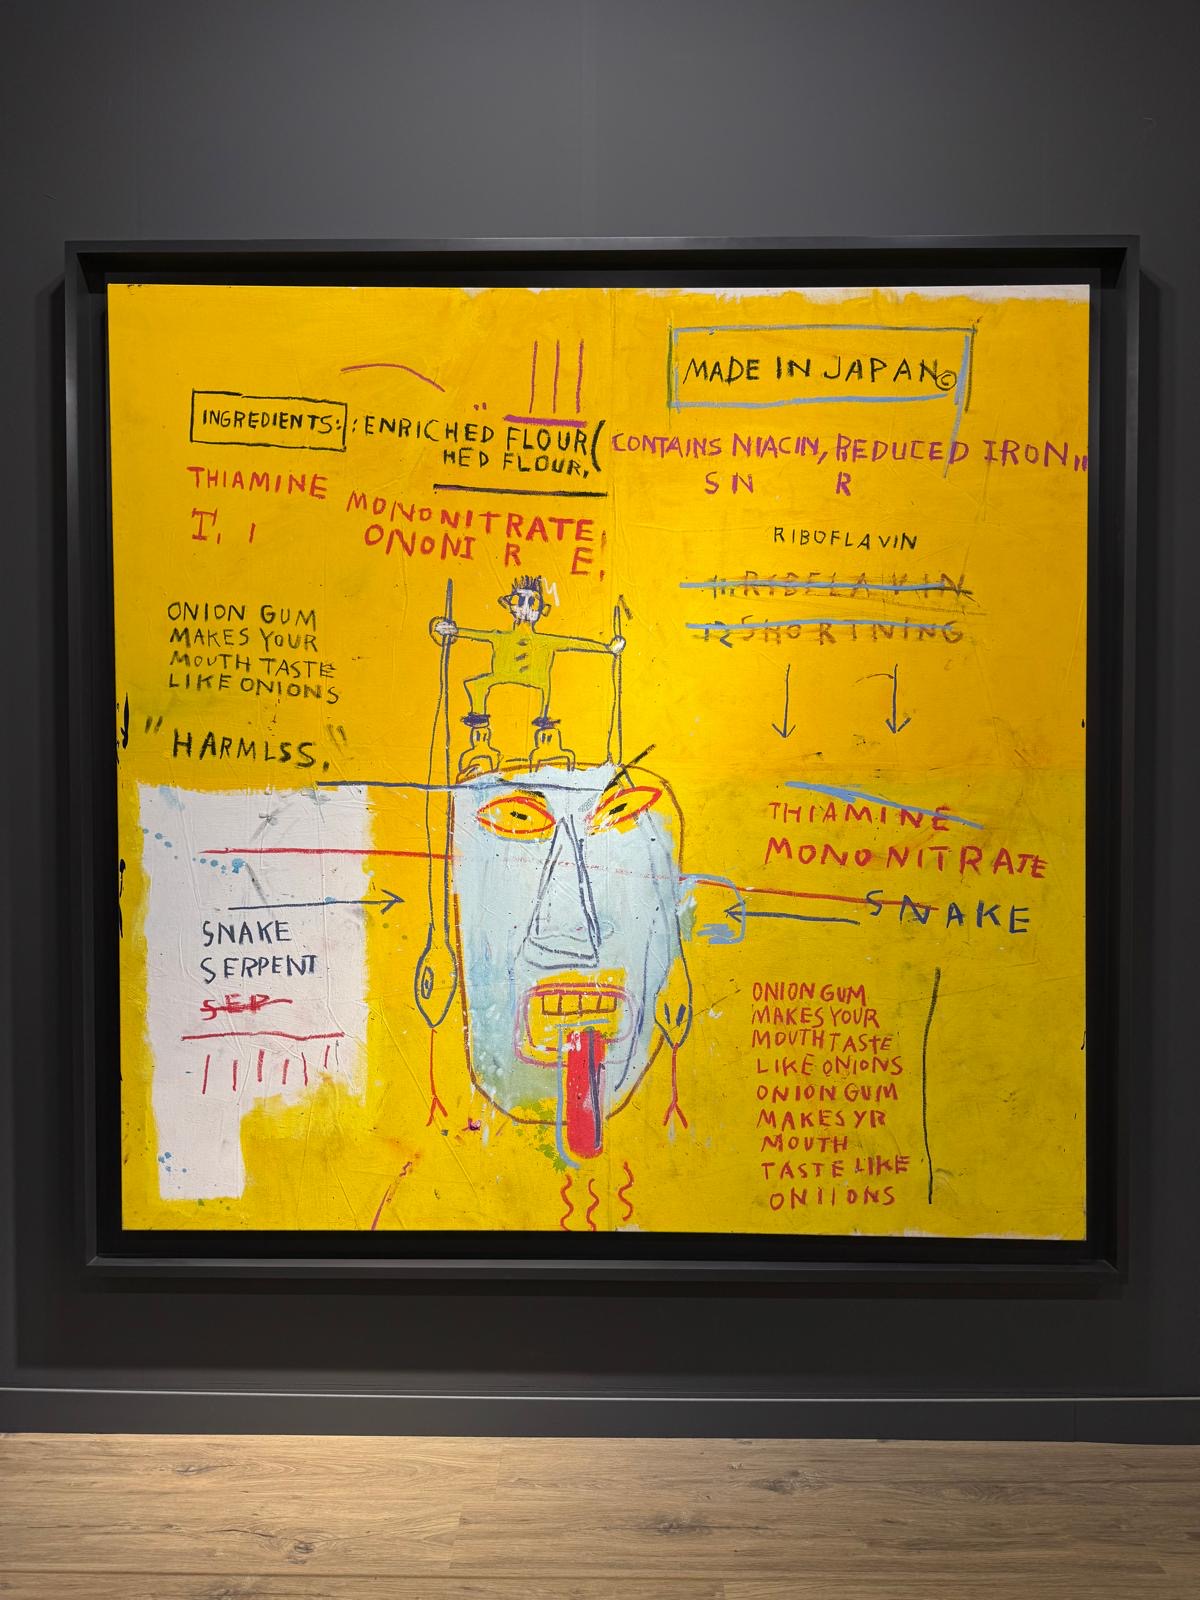 MADE IN JAPAN©
INGREDIENTS: : ENRICHED FLOUR(
HED FLOUR,
CONTAINS NIACIN, REDUCED IRON,,
SN R
THIAMINE
MONONITRATE
T, I
ONONI R E,
RIBOFLAVIN
RIBELAVIN
12 SHORTNING
ONION GUM
MAKES YOUR
MOUTH TASTE
LIKE ONIONS
"HARMLSS."
THIAMINE
MONONITRATE
SNAKE
SNAKE
SERPENT
SEP
ONION GUM
MAKES YOUR
MOUTH TASTE
LIKE ONIONS
ONION GUM
MAKES YR
MOUTH
TASTE LIKE
ONIIONS